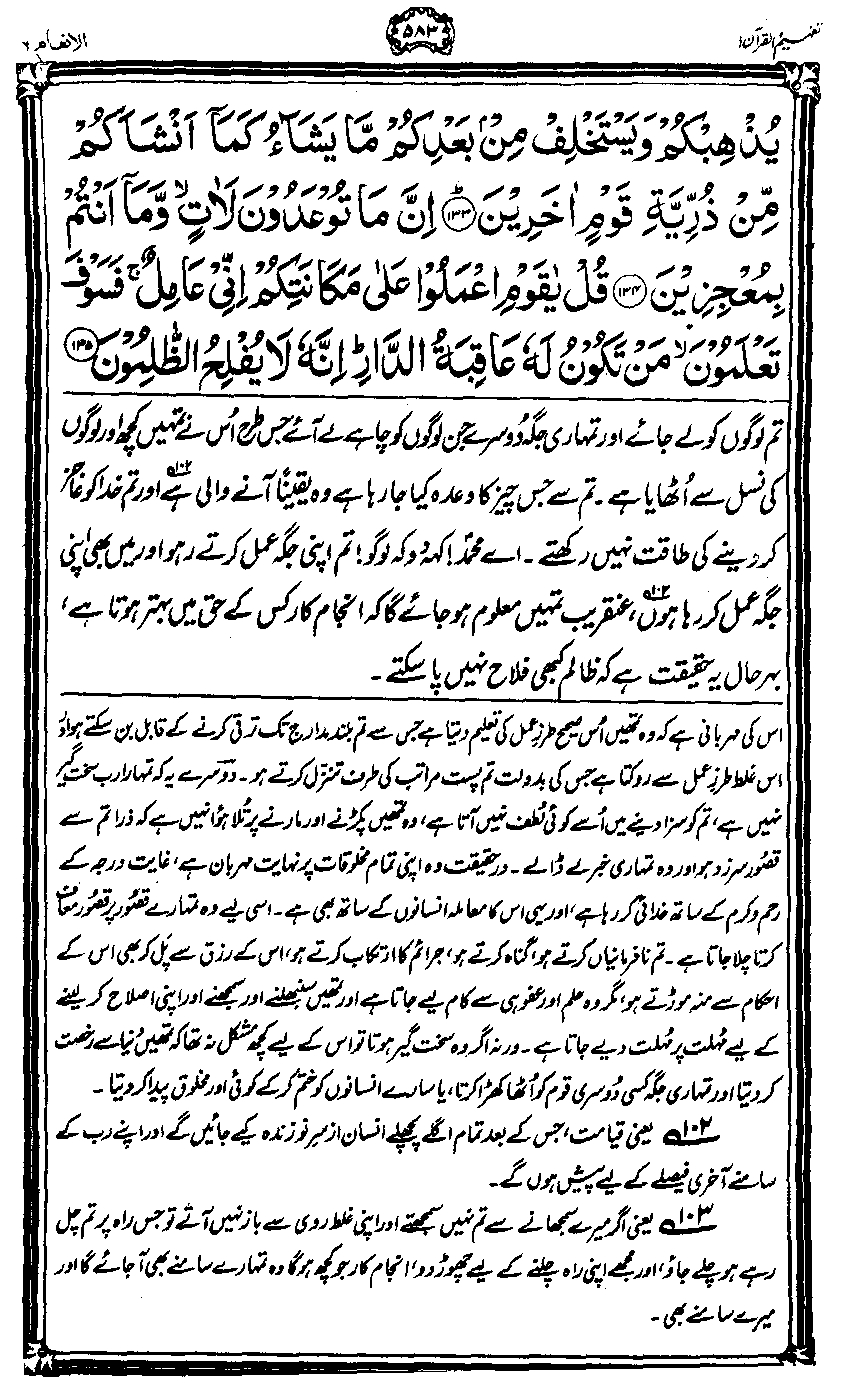 تفہیم القرآن ۱
۵۸۳
الانعام ۶
يُذْهِبْكُمْ وَيَسْتَخْلِفْ مِنْۢ بَعْدِكُمْ مَّا يَشَآءُ كَمَآ اَنْشَاَكُمْ
مِّنْ ذُرِّيَّةِ قَوْمٍ اٰخَرِيْنَ ﴿۱۳۳﴾ اِنَّ مَا تُوْعَدُوْنَ لَاٰتٍ ۙ وَّمَآ اَنْتُمْ
بِمُعْجِزِيْنَ ﴿۱۳۴﴾ قُلْ يٰقَوْمِ اعْمَلُوْا عَلٰى مَكَانَتِكُمْ اِنِّيْ عَامِلٌ ۚ فَسَوْفَ
تَعْلَمُوْنَ ۙ مَنْ تَكُوْنُ لَهٗ عَاقِبَةُ الدَّارِ ؕ اِنَّهٗ لَا يُفْلِحُ الظّٰلِمُوْنَ ﴿۱۳۵﴾
تم لوگوں کو لے جائے اور تمہاری جگہ دُوسرے جن لوگوں کو چاہے لے آئے جس طرح اُس نے تمہیں کچھ اور لوگوں
کی نسل سے اُٹھایا ہے۔ تم سے جس چیز کا وعدہ کیا جا رہا ہے وہ یقیناً آنے والی ہے۱۰۲ اور تم خدا کو عاجز
کر دینے کی طاقت نہیں رکھتے۔ اے محمدؐ! کہہ دو کہ لوگو! تم اپنی جگہ عمل کرتے رہو اور میں بھی اپنی
جگہ عمل کر رہا ہوں۱۰۳، عنقریب تمہیں معلوم ہو جائے گا کہ انجام کار کس کے حق میں بہتر ہوتا ہے،
بہرحال یہ حقیقت ہے کہ ظالم کبھی فلاح نہیں پا سکتے۔
اس کی مہربانی ہے کہ وہ تمھیں اُس صحیح طرزِ عمل کی تعلیم دیتا ہے جس سے تم بلند مدارج تک ترقی کرنے کے قابل بن سکتے ہو اور
اس غلط طرزِ عمل سے روکتا ہے جس کی بدولت تم پست مراتب کی طرف تنزّل کرتے ہو۔ دوسرے یہ کہ تمہارا رب سخت گیر
نہیں ہے، تم کو سزا دینے میں اُسے کوئی لُطف نہیں آتا ہے، وہ تمھیں پکڑنے اور مارنے پر تُلا ہوا نہیں ہے کہ ذرا تم سے
قصُور سرزد ہو اور وہ تمہاری خبر لے ڈالے۔ درحقیقت وہ اپنی تمام مخلوقات پر نہایت مہربان ہے، غایت درجہ کے
رحم و کرم کے ساتھ خدائی کر رہا ہے، اور یہی اس کا معاملہ انسانوں کے ساتھ بھی ہے۔ اسی لیے وہ تمہارے قصُور پر قصُور معاف
کرتا چلا جاتا ہے۔ تم نافرمانیاں کرتے ہو، گناہ کرتے ہو، جرائم کا ارتکاب کرتے ہو، اس کے رزق سے پَل کر بھی اس کے
احکام سے منہ موڑتے ہو، مگر وہ حلم اور عفو ہی سے کام لیے جاتا ہے اور تمھیں سنبھلنے اور سمجھنے اور اپنی اصلاح کر لینے
کے لیے مُہلت پر مُہلت دیے جاتا ہے۔ ورنہ اگر وہ سخت گیر ہوتا تو اس کے لیے کچھ مشکل نہ تھا کہ تمھیں دُنیا سے رخصت
کر دیتا اور تمہاری جگہ کسی دُوسری قوم کو اُٹھا کھڑا کرتا، یا سارے انسانوں کو ختم کر کے کوئی اور مخلوق پیدا کر دیتا۔
۱۰۲ یعنی قیامت، جس کے بعد تمام اگلے پچھلے انسان از سرِ نو زندہ کیے جائیں گے اور اپنے رب کے
سامنے آخری فیصلے کے لیے پیش ہوں گے۔
۱۰۳ یعنی اگر میرے سمجھانے سے تم نہیں سمجھتے اور اپنی غلط روی سے باز نہیں آتے تو جس راہ پر تم چل
رہے ہو چلے جاؤ، اور مجھے اپنی راہ چلنے کے لیے چھوڑ دو، انجام کار جو کچھ ہوگا وہ تمہارے سامنے بھی آ جائے گا اور
میرے سامنے بھی۔